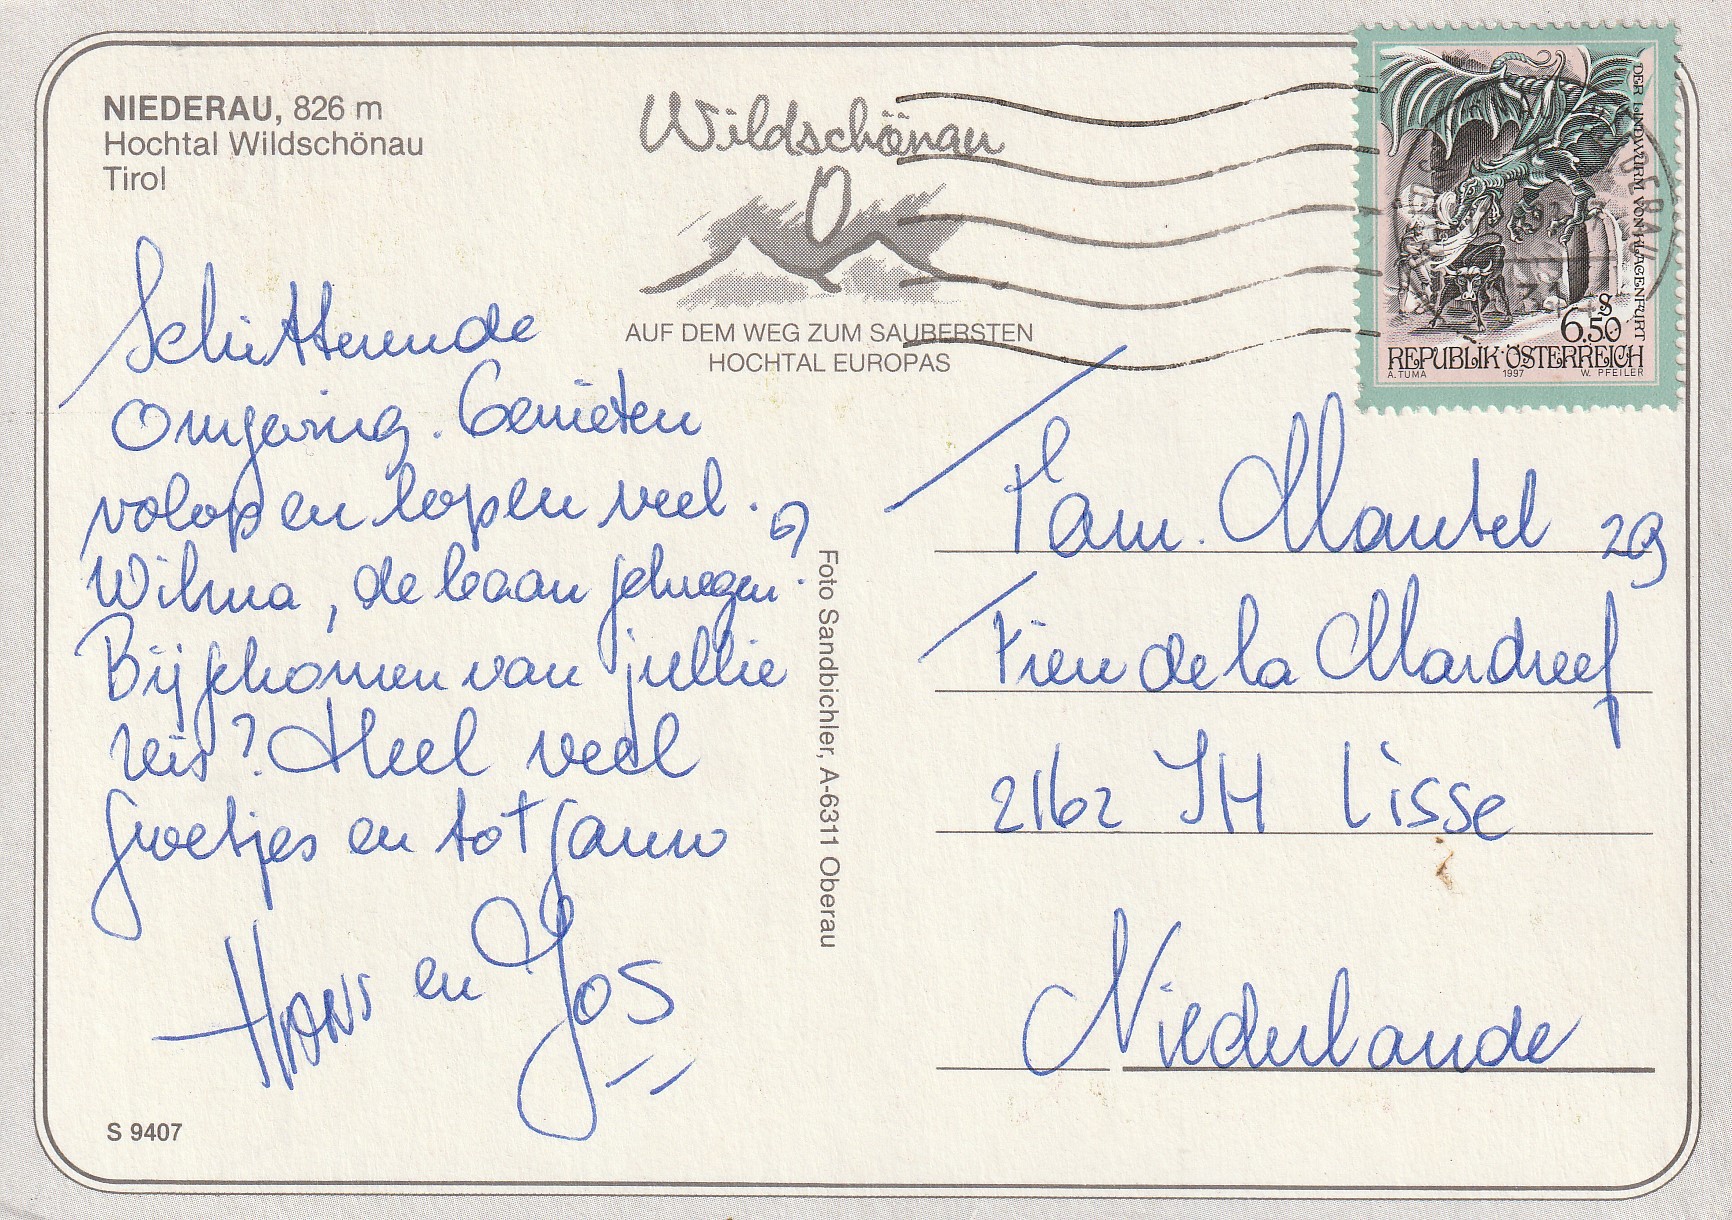 NIEDERAU, 826 m
Hochtal Wildschönau
Tirol
Wildschönau
AUF DEM WEG ZUM SAUBERSTEN
HOCHTAL EUROPAS
DER LINDWURM VON KLAGENFURT
6.50 S
REPUBLIK ÖSTERREICH
A. TUMA 1997 W. PFEILER
Schitterende
omgeving. Genieten
volop en lopen veel.
Wilma, de baan gekregen?
Bijgekomen van jullie
reis? Heel veel
groetjes en tot gauw
Hans en Jos
Foto Sandbichler, A-6311 Oberau
Fam. Mantel 29
Fien de la Mardreef
2162 JH Lisse
Niederlande
S 9407